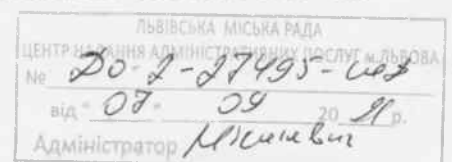 ЛЬВІВСЬКА МІСЬКА РАДА
ЦЕНТР НАДАННЯ АДМІНІСТРАТИВНИХ ПОСЛУГ м.ЛЬВОВА
№ ДО-2-27495-
від "07" 09 2021 р.
Адміністратор